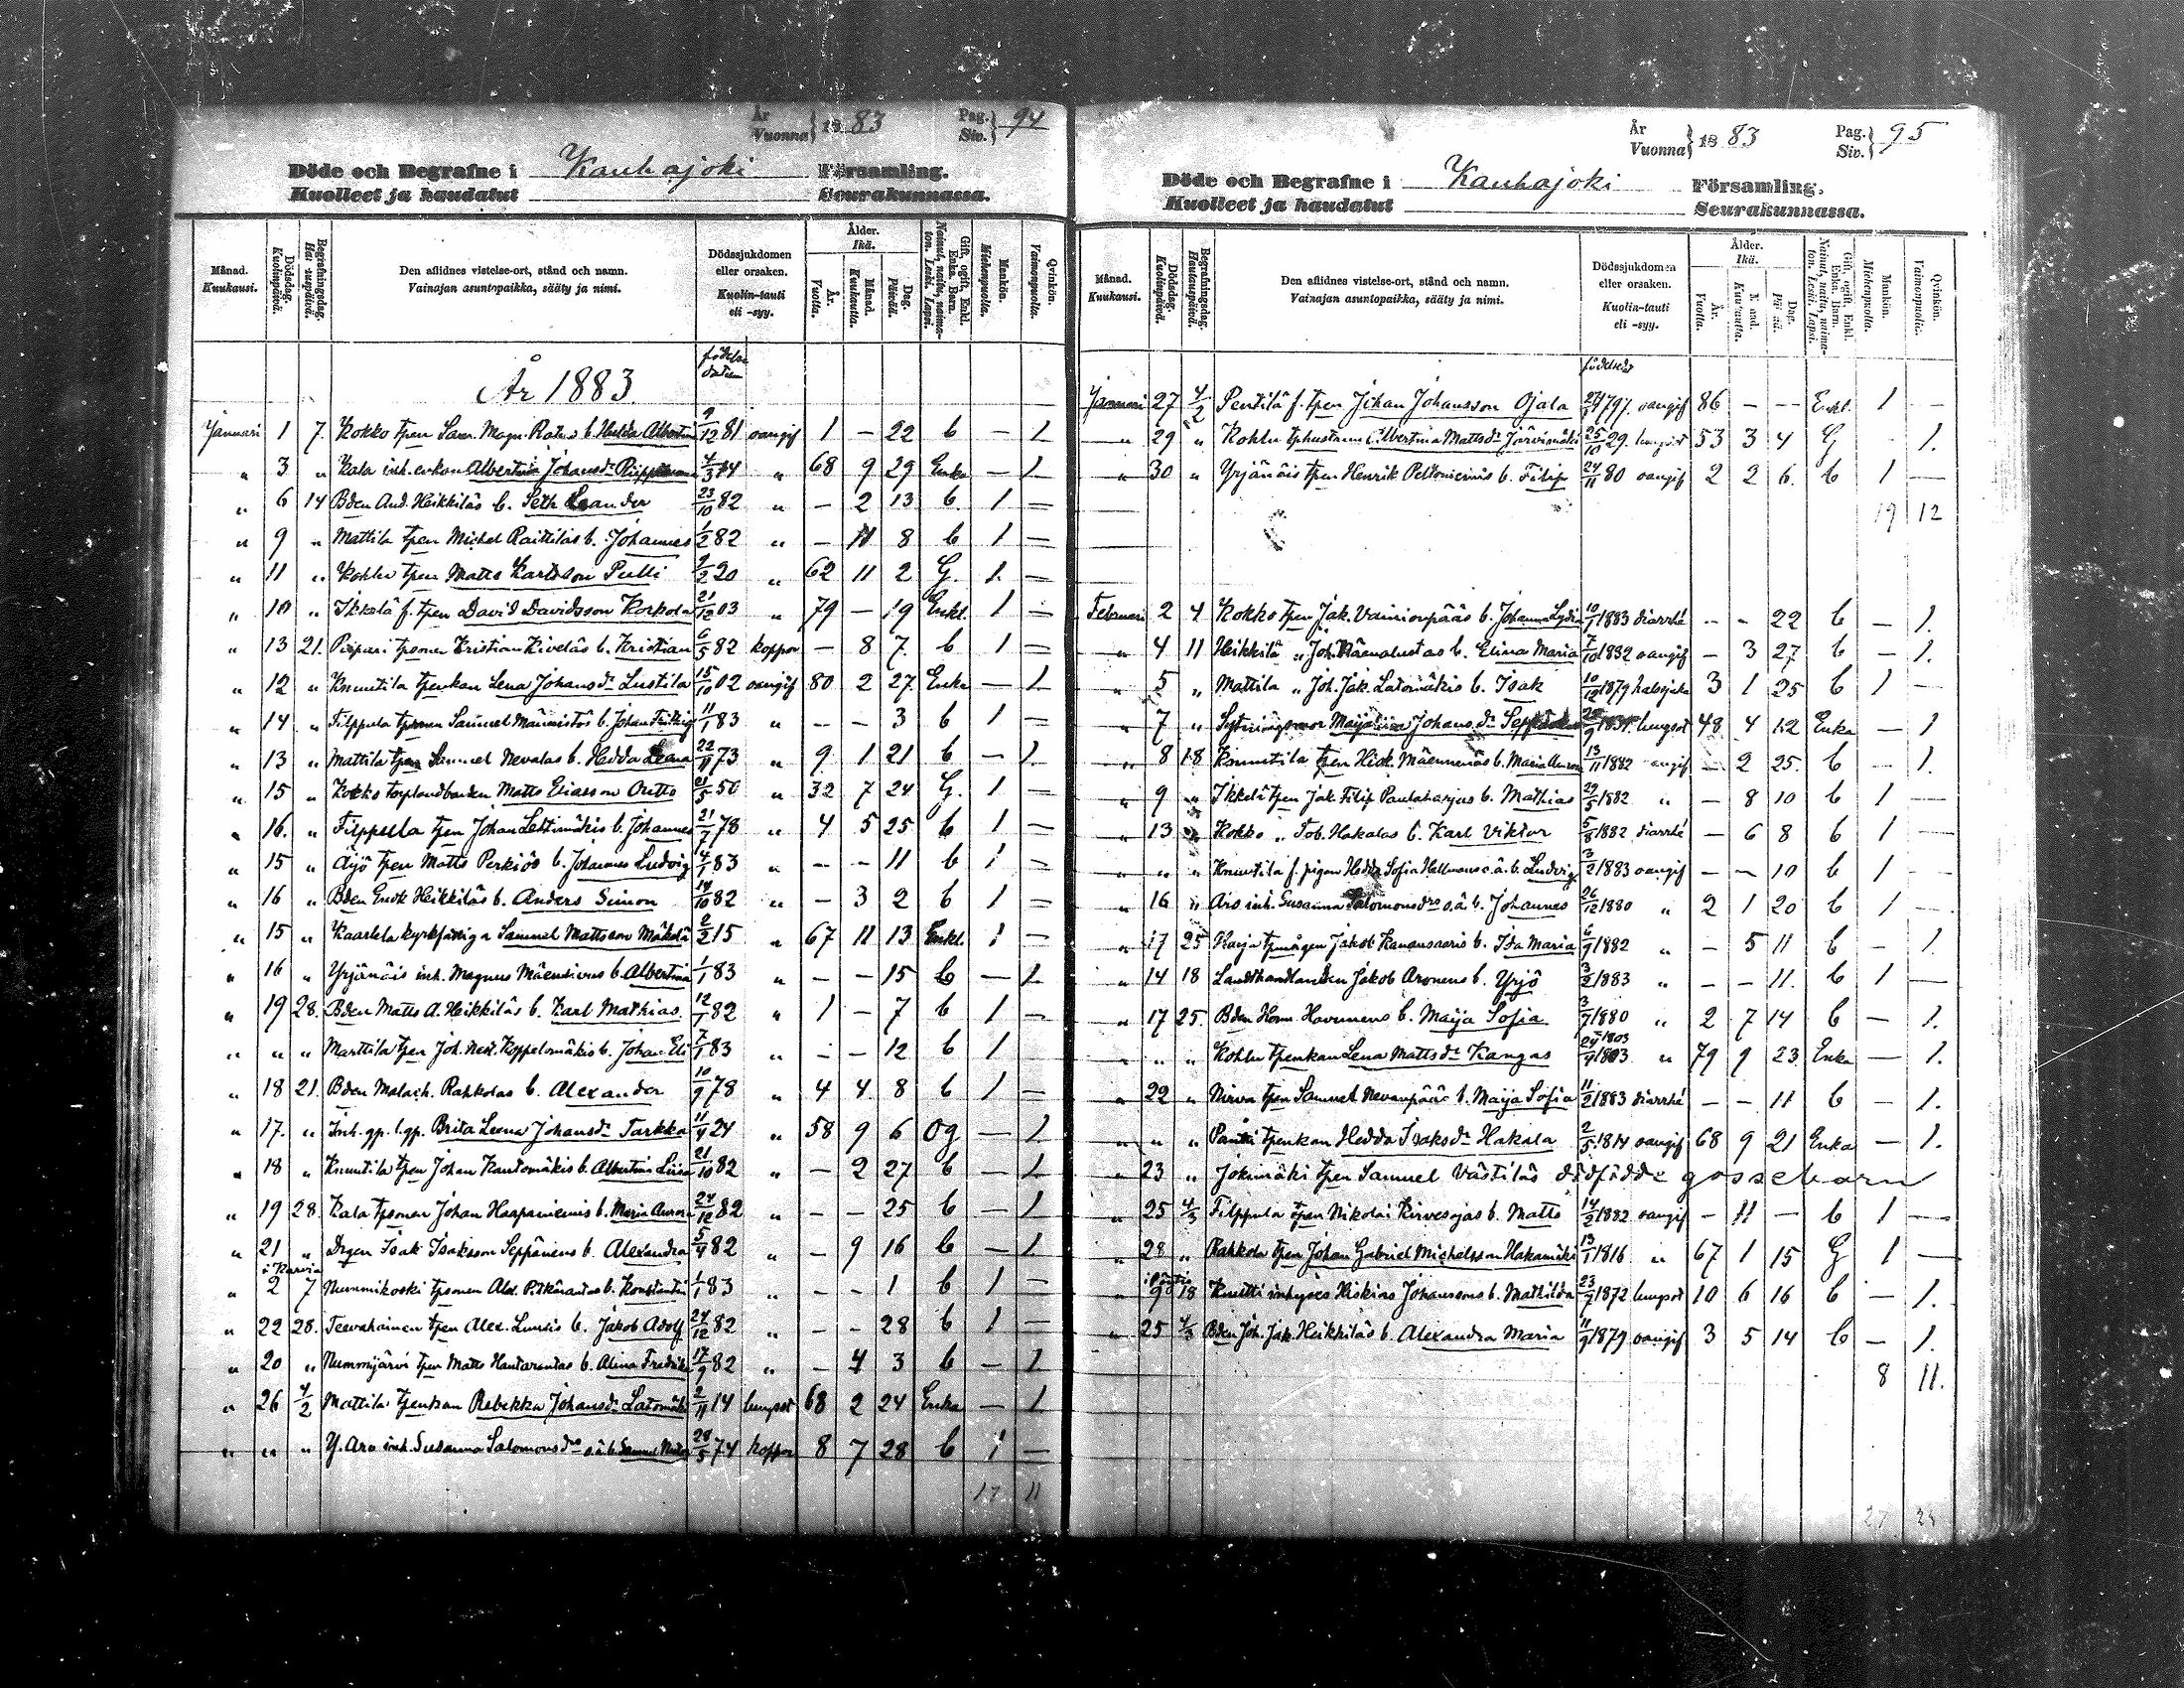 År
Vuonna } 1883 Pag.
Siv. } 94
Döde och Begrafne i Kauhajoki Församling.
Kuolleet ja haudatut Seurakunnassa.
Månad.
Kuukausi.
Dödsdag.
Kuolinpäivä.
Begrafningsdag.
Hautauspäivä.
Den aflidnes vistelse-ort, stånd och namn.
Vainajan asuntopaikka, sääty ja nimi.
Dödssjukdomen
eller orsaken.
Kuolin-tauti
eli -syy.
Ålder.
Ikä.
År. Vuotta.
Månad. Kuukautta.
Dag. Päivää.
Gift, ogift, Enkl.
Enka. Barn.
Nainut, naitu, naima-
ton. Leski. Lapsi.
Mankön.
Miehenpuolia.
Qvinkön.
Vaimonpuolia.
födelse
datum
År 1883.
Januari 1 7. Kokko tpen Sam. Magn. b. Hulda Albertina 9/12 81 oangif 1 — 22 b — 1
" 3 " Kala inh. enkan Albertina Johansdr 4/3 14 " 68 9 29 Enka — 1
" 6 14 Bden And. Heikkiläs b. Seth Leander 23/10 82 " — 2 13 b. 1 —
" 9 " Mattila tpen Michel Raittilas b. Johannes 1/2 82 " — 11 8 b 1 —
" 11 " Kohlu tpen Matts Karlsson Pulli 9/2 20 " 62 11 2 G. 1 —
" 10 " Ikkelä f. tpen David Davidsson Korkola 21/12 03 " 79 — 19 Enkl. 1 —
" 13 21. Piipari tpsonen Kristian Kiveläs b. Kristian 6/5 82 koppor — 8 7 b 1 —
" 12 " Knuutila tpenkan Lena Johansdr Lustila 15/10 02 oangif 80 2 27 Enka — 1
" 14 " Filppula tpsonen Samuel Männistös b. Johan 11/1 83 " — — 3 b 1 —
" 13 " Mattila tpen Samuel Nevalas b. Hedda Leena 22/11 73 " 9 1 21 b — 1
" 15 " Kokko Matts Eliasson 21/5 50 " 32 7 24 G. 1 —
" 16. " Filppula tpen Johan Lehtimäkis b. Johannes 21/7 78 " 4 5 25 b 1 —
" 15 " Äijö tpen Matts Perkiös b. Johannes Ludvig 4/1 83 " — — 11 b 1 —
" 16 " Bden Heikkiläs b. Anders Simon 14/10 82 " — 3 2 b 1 —
" 15 " Kaarlela kyrkfattiga Samuel Mattsson Mäkelä 2/2 15 " 67 11 13 Enkl. 1 —
" 16 " Yrjänäis inh. Magnus b. Albertina 1/1 83 " — — 15 b — 1
" 19 28. Bden Matts A. Heikkiläs b. Karl Mathias 12/1 82 " 1 — 7 b 1 —
" " " Marttila tpen Joh. Koppelomäkis b. Johan Eli 7/1 83 " — — 12 b 1
" 18 21. Bden Malach. Rahkolas b. Alexander 10/9 78 " 4 4 8 b 1 —
" 17. " Inh. gp. Brita Leena Johansdr Tarkka 11/4 24 " 58 9 6 Og — 1
" 18 " Knuutila tpen Johan Kantomäkis b. Albertina 21/10 82 " — 2 27 b — 1
" 19 28. Kala tpsonen Johan Haapaniemis b. Maria Aurora 24/12 82 " — — 25 b — 1
" 21 " Drgen Isak Isaksson Seppänens b. Alexandra 5/4 82 " — 9 16 b — 1
i Karvia
" 2 7 Nummikoski tpsonen Alex. b. Konstantin 1/1 83 " — — 1 b 1 —
" 22 28. tpen Alex. b. Jakob Adolf 24/12 82 " — — 28 b 1 —
" 20 " Nummijärvi tpen Matts b. Alina Fredrika 17/9 82 " — 4 3 b — 1
" 26 4/2 Mattila tpenkan Rebekka Johansdr Latomäki 2/11 14 lungsot 68 2 24 Enka — 1
" " " Y. Aro inh. Susanna Salomonsdrs o.ä. b. Samuel 28/5 74 koppor 8 7 28 b 1 —
17 11
År
Vuonna } 1883 Pag.
Siv. } 95
Döde och Begrafne i Kauhajoki Församling.
Kuolleet ja haudatut Seurakunnassa.
Månad.
Kuukausi.
Dödsdag.
Kuolinpäivä.
Begrafningsdag.
Hautauspäivä.
Den aflidnes vistelse-ort, stånd och namn.
Vainajan asuntopaikka, sääty ja nimi.
Dödssjukdomen
eller orsaken.
Kuolin-tauti
eli -syy.
Ålder.
Ikä.
År. Vuotta.
Dag.
Gift, ogift, Enkl.
Enka. Barn.
Nainut, naitu, naima-
ton. Leski. Lapsi.
Mankön.
Miehenpuolia.
Qvinkön.
Vaimonpuolia.
Januari 27 4/2 Pentilä f. tpen Johan Johansson Ojala 1797. oangif 86 — — Enkl. 1 —
" 29 " Kohlu tphustrun Albertina Mattsdr Järvimäki 25/10 29. lungsot 53 3 4 G — 1.
" 30 " Yrjänäis tpen Henrik Peltoniemis b. Filip 24/11 80 oangif 2 2 6. b 1 —
19 12
Februari 2 4 Kokko tpen Jak. Vainionpääs b. Johanna Lydia 10/1 1883 diarrhé — — 22 b — 1.
" 4 11 Heikkilä " Joh. b. Elina Maria 7/10 1882 oangif — 3 27 b — 1.
" 5 " Mattila " Joh. Jak. Latomäkis b. Isak 10/12 1879 halssjuka 3 1 25 b 1 —
" 7 " Johans dr lungsot 48 4 12 Enka — 1
" 8 18 Knuutila tpen b. Maria Aurora 13/11 1882 oangif — 2 25. b — 1.
" 9 " Ikkelä tpen Jak. Filip Pauluharjus b. Mathias 29/5 1882 " — 8 10 b 1 —
" 13 " Kokko " Tob. Hakalas b. Karl Viktor 5/8 1882 diarrhé — 6 8 b 1 —
" " " Knuutila f. pigan Hedda Sofia Hallmans o.ä. b. Ludvig 3/2 1883 oangif — — 10 b 1 —
" 16 " Aro inh. Susanna Salomonsdrs o.ä. b. Johannes 26/12 1880 " 2 1 20 b 1 —
" 17 25 Harja Jakob b. Ida Maria 6/9 1882 " — 5 11 b — 1.
" 14 18 Landthandlanden Jakob Aronens b. Yrjö 3/2 1883 " — — 11. b 1 —
" 17 25. Bden Herm. Havunens b. Maija Sofia 3/7 1880 " 2 7 14 b — 1.
" " " Kohlu tpenkan Lena Mattsdr Kangas 1803 " 79 9 23 Enka — 1.
" 22 " Nirva tpen Samuel Nevanpääs b. Maija Sofia 11/2 1883 diarrhé — — 11 b — 1.
" " " Päntti tpenkan Hedda Isaksdr Hakala 2/5 1814 oangif 68 9 21 Enka — 1.
" 23 " Jokimäki tpen Samuel Västiläs dödfödde gossebarn
" 25 4/3 Filppula tpen Nikolai Kirvesojas b. Matts 14/2 1882 oangif — 11 — b 1 —
" 28 " Rahkola tpen Johan Gabriel Michelsson Hakamäki 13/1 1816 " 67 1 15 G 1 —
" 9 18 Knutti inhyses Hiskias Johanssons b. Mathilda 23/7 1872 lungsot 10 6 16 b — 1.
" 25 4/3 Bden Joh. Jak. Heikkiläs b. Alexandra Maria 11/9 1879 oangif 3 5 14 b — 1.
8 11.